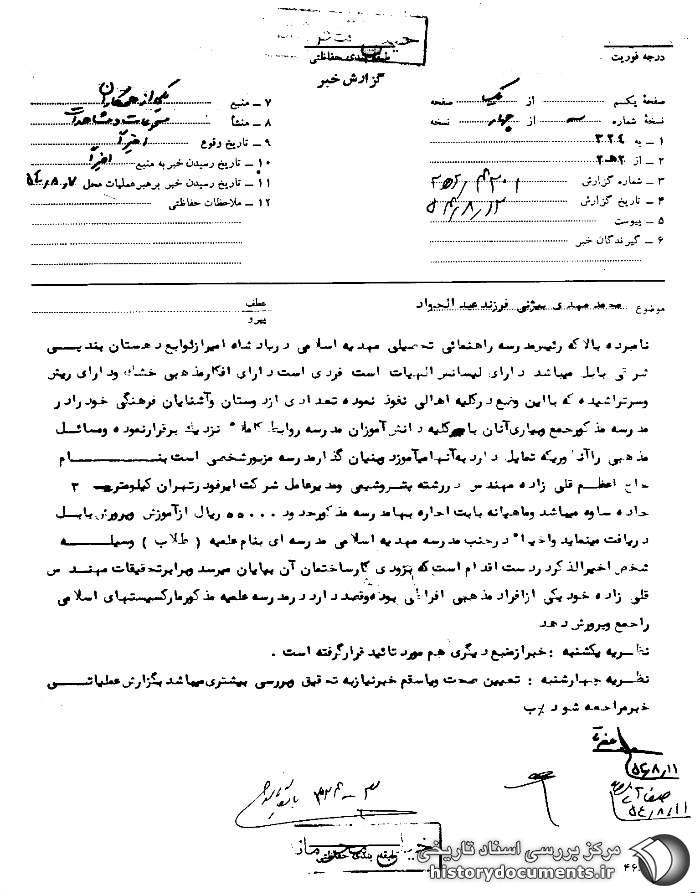 خیلی محرمانه
طبقه بندی حفاظتی
گزارش خبر
درجه فوریت
صفحه یکم از یک صفحه
نسخه شماره سه از چهار نسخه
۱ ـ به ۳۲۴
۲ ـ از
۳ ـ شماره گزارش
۴ ـ تاریخ گزارش ۵۴/۸/۱۲
۵ ـ پیوست
۶ ـ گیرندگان خبر
۷ ـ منبع یکی از همکاران
۸ ـ منشأ مسموعات و مشاهدات
۹ ـ تاریخ وقوع اخیراً
۱۰ ـ تاریخ رسیدن خبر به منبع اخیراً
۱۱ ـ تاریخ رسیدن خبر برهبر عملیات محل ۵۴/۸/۷
۱۲ ـ ملاحظات حفاظتی
موضوع محمد مهدی بیژنی فرزند عبدالجواد
عطف
پیرو
نامبرده بالا که رئیس مدرسه راهنمائی تحصیلی مهدیه اسلامی درباد شاه امیر از توابع دهستان بندپی
شرقی بابل میباشد دارای لیسانس الهیات است فردی است دارای افکار مذهبی خشک و دارای ریش
و سر تراشیده که با این وضع در کلیه اهالی نفوذ نموده تعدادی از دوستان و آشنایان فرهنگی خود را در
مدرسه مذکور جمع و بیاری آنان با کلیه دانش آموزان مدرسه روابط کاملا نزدیک برقرار نموده و مسائل
مذهبی را آنطوریکه تمایل دارد به آنها میآموزد و بنیان گذار مدرسه مزبور شخصی است بنام
حاج اعظم قلی زاده مهندس در رشته پتروشیمی و مدیر عامل شرکت ایرفود تهران کیلومتر ۳
جاده ساوه میباشد و ماهیانه بابت اجاره بها مدرسه مذکور حدود ۵۵۰۰۰ ریال از آموزش و پرورش بابل
دریافت مینماید و اخیراً در جنب مدرسه مهدیه اسلامی مدرسه ای بنام علمیه ( طلاب ) وسیله
شخص اخیرالذکر در دست اقدام است که بزودی کار ساختمان آن بپایان میرسد و برابر تحقیقات مهندس
قلی زاده خود یکی از افراد مذهبی افراطی بوده و قصد دارد در مدرسه علمیه مذکور مارکسیستهای اسلامی
را جمع و پرورش دهد
نظریه یکشنبه : خبر از منبع دیگری هم مورد تائید قرار گرفته است .
نظریه چهارشنبه : تعیین صحت و یا سقم خبر نیاز به تحقیق و بررسی بیشتری میباشد بگزارش عملیاتی
خبر مراجعه شود
۵۴/۸/۱۱
۵۴/۸/۱۱
طبقه بندی حفاظتی
مرکز بررسی اسناد تاریخی
historydocuments.ir